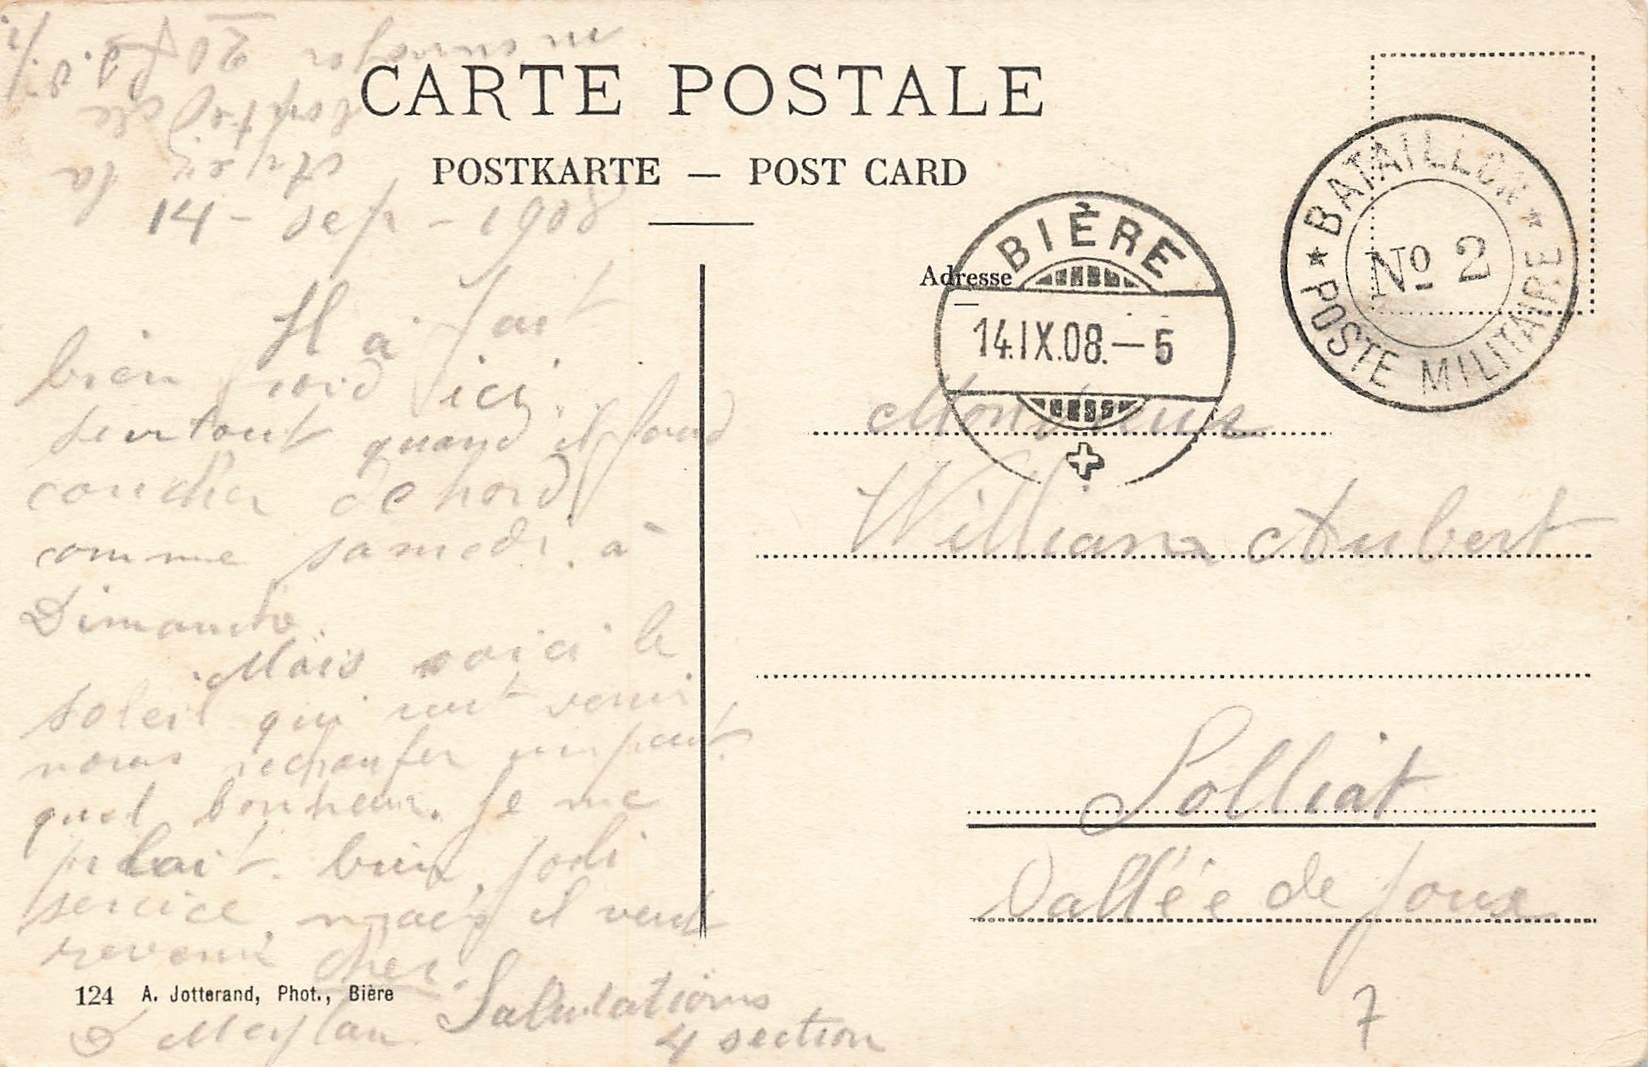 CARTE POSTALE
POSTKARTE — POST CARD
14 - sep - 1908
Il a fait
bien froid ici
surtout quand il faud
coucher dehord
comme samedi à
Dimanche
Mais voici le
soleil qui vient venir
nous rechaufer un peut
quel bonheur. Je me
plait bien joli
service mais il veut
revenir cher.
Salutations
Meylan
4 section
124 A. Jotterand, Phot., Bière
Adresse
BIÈRE
14.IX.08.—5
★ BATAILLON ★
No 2
POSTE MILITAIRE
Monsieur
William Aubert
Solliat
Vallée de Joux
7